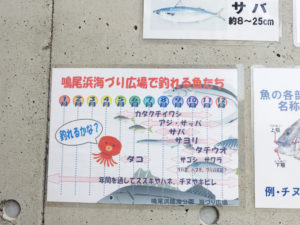 サバ
約8～25cm
鳴尾浜海づり広場で釣れる魚たち
1 2 3 4 5 6 7 8 9 10 11 12
カタクチイワシ
アジ・サッパ
サバ
サヨリ
タチウオ
釣れるかな?
タコ
サゴシ サワラ
年間を通してスズキやハネ、チヌやキビレ
鳴尾浜臨海公園 海づり広場
魚の各部
名称
例・チヌ